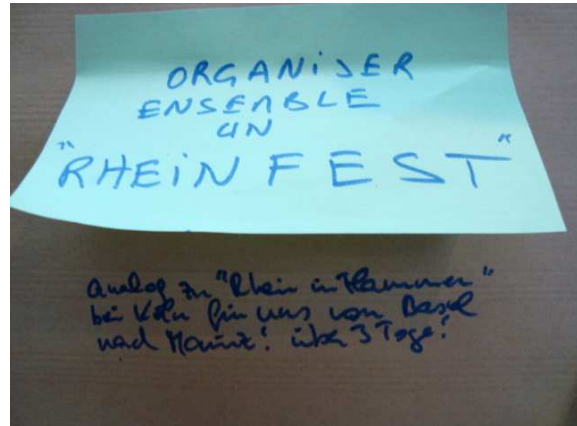 ORGANiSER
ENSEMBLE
UN
"RHEiN FEST"
analog zu "Rhein in Flammen"
bei Köln für uns von Basel
nach Mainz! über 3 Tage!